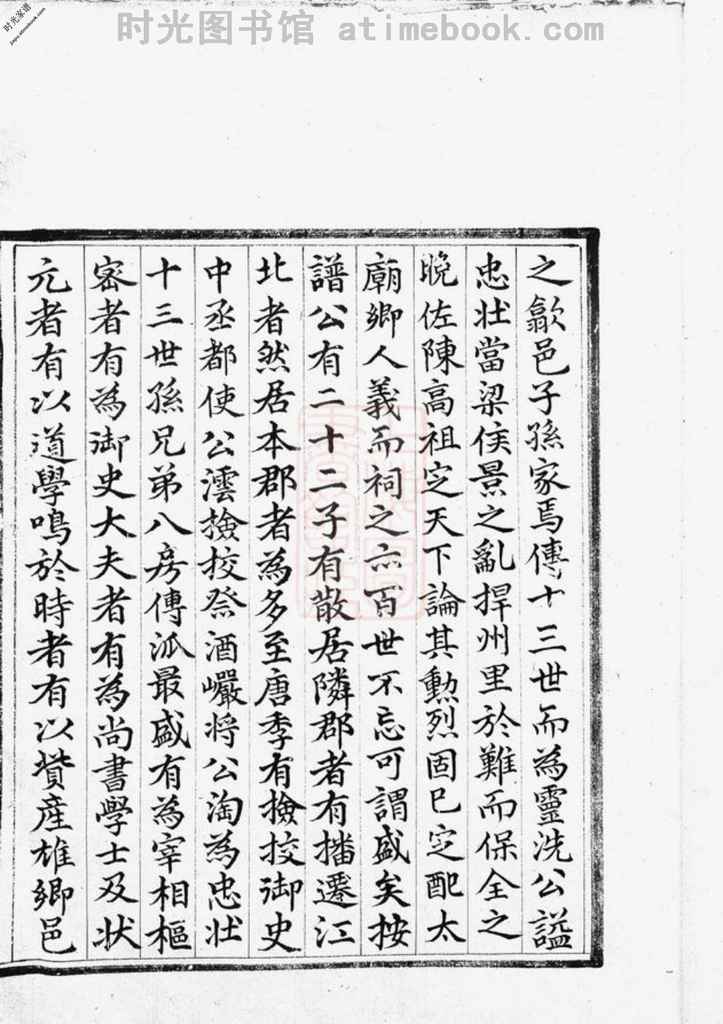 时光图书馆 atimebook.com
时光家谱
jiapu.atimebook.com
之歙邑子孫家焉傳十三世而為靈洗公諡
忠壯當梁侯景之亂捍州里於難而保全之
晚佐陳高祖定天下論其勲烈固已定配太
廟鄉人義而祠之亦百世不忘可謂盛矣按
譜公有二十二子有散居隣郡者有播遷江
北者然居本郡者為多至唐季有檢挍御史
中丞都使公澐檢挍祭酒巗將公淘為忠壯
十三世孫兄弟八房傳派最盛有為宰相樞
密者有為御史大夫者有為尚書學士及狀
元者有以道學鳴於時者有以貲産雄鄉邑